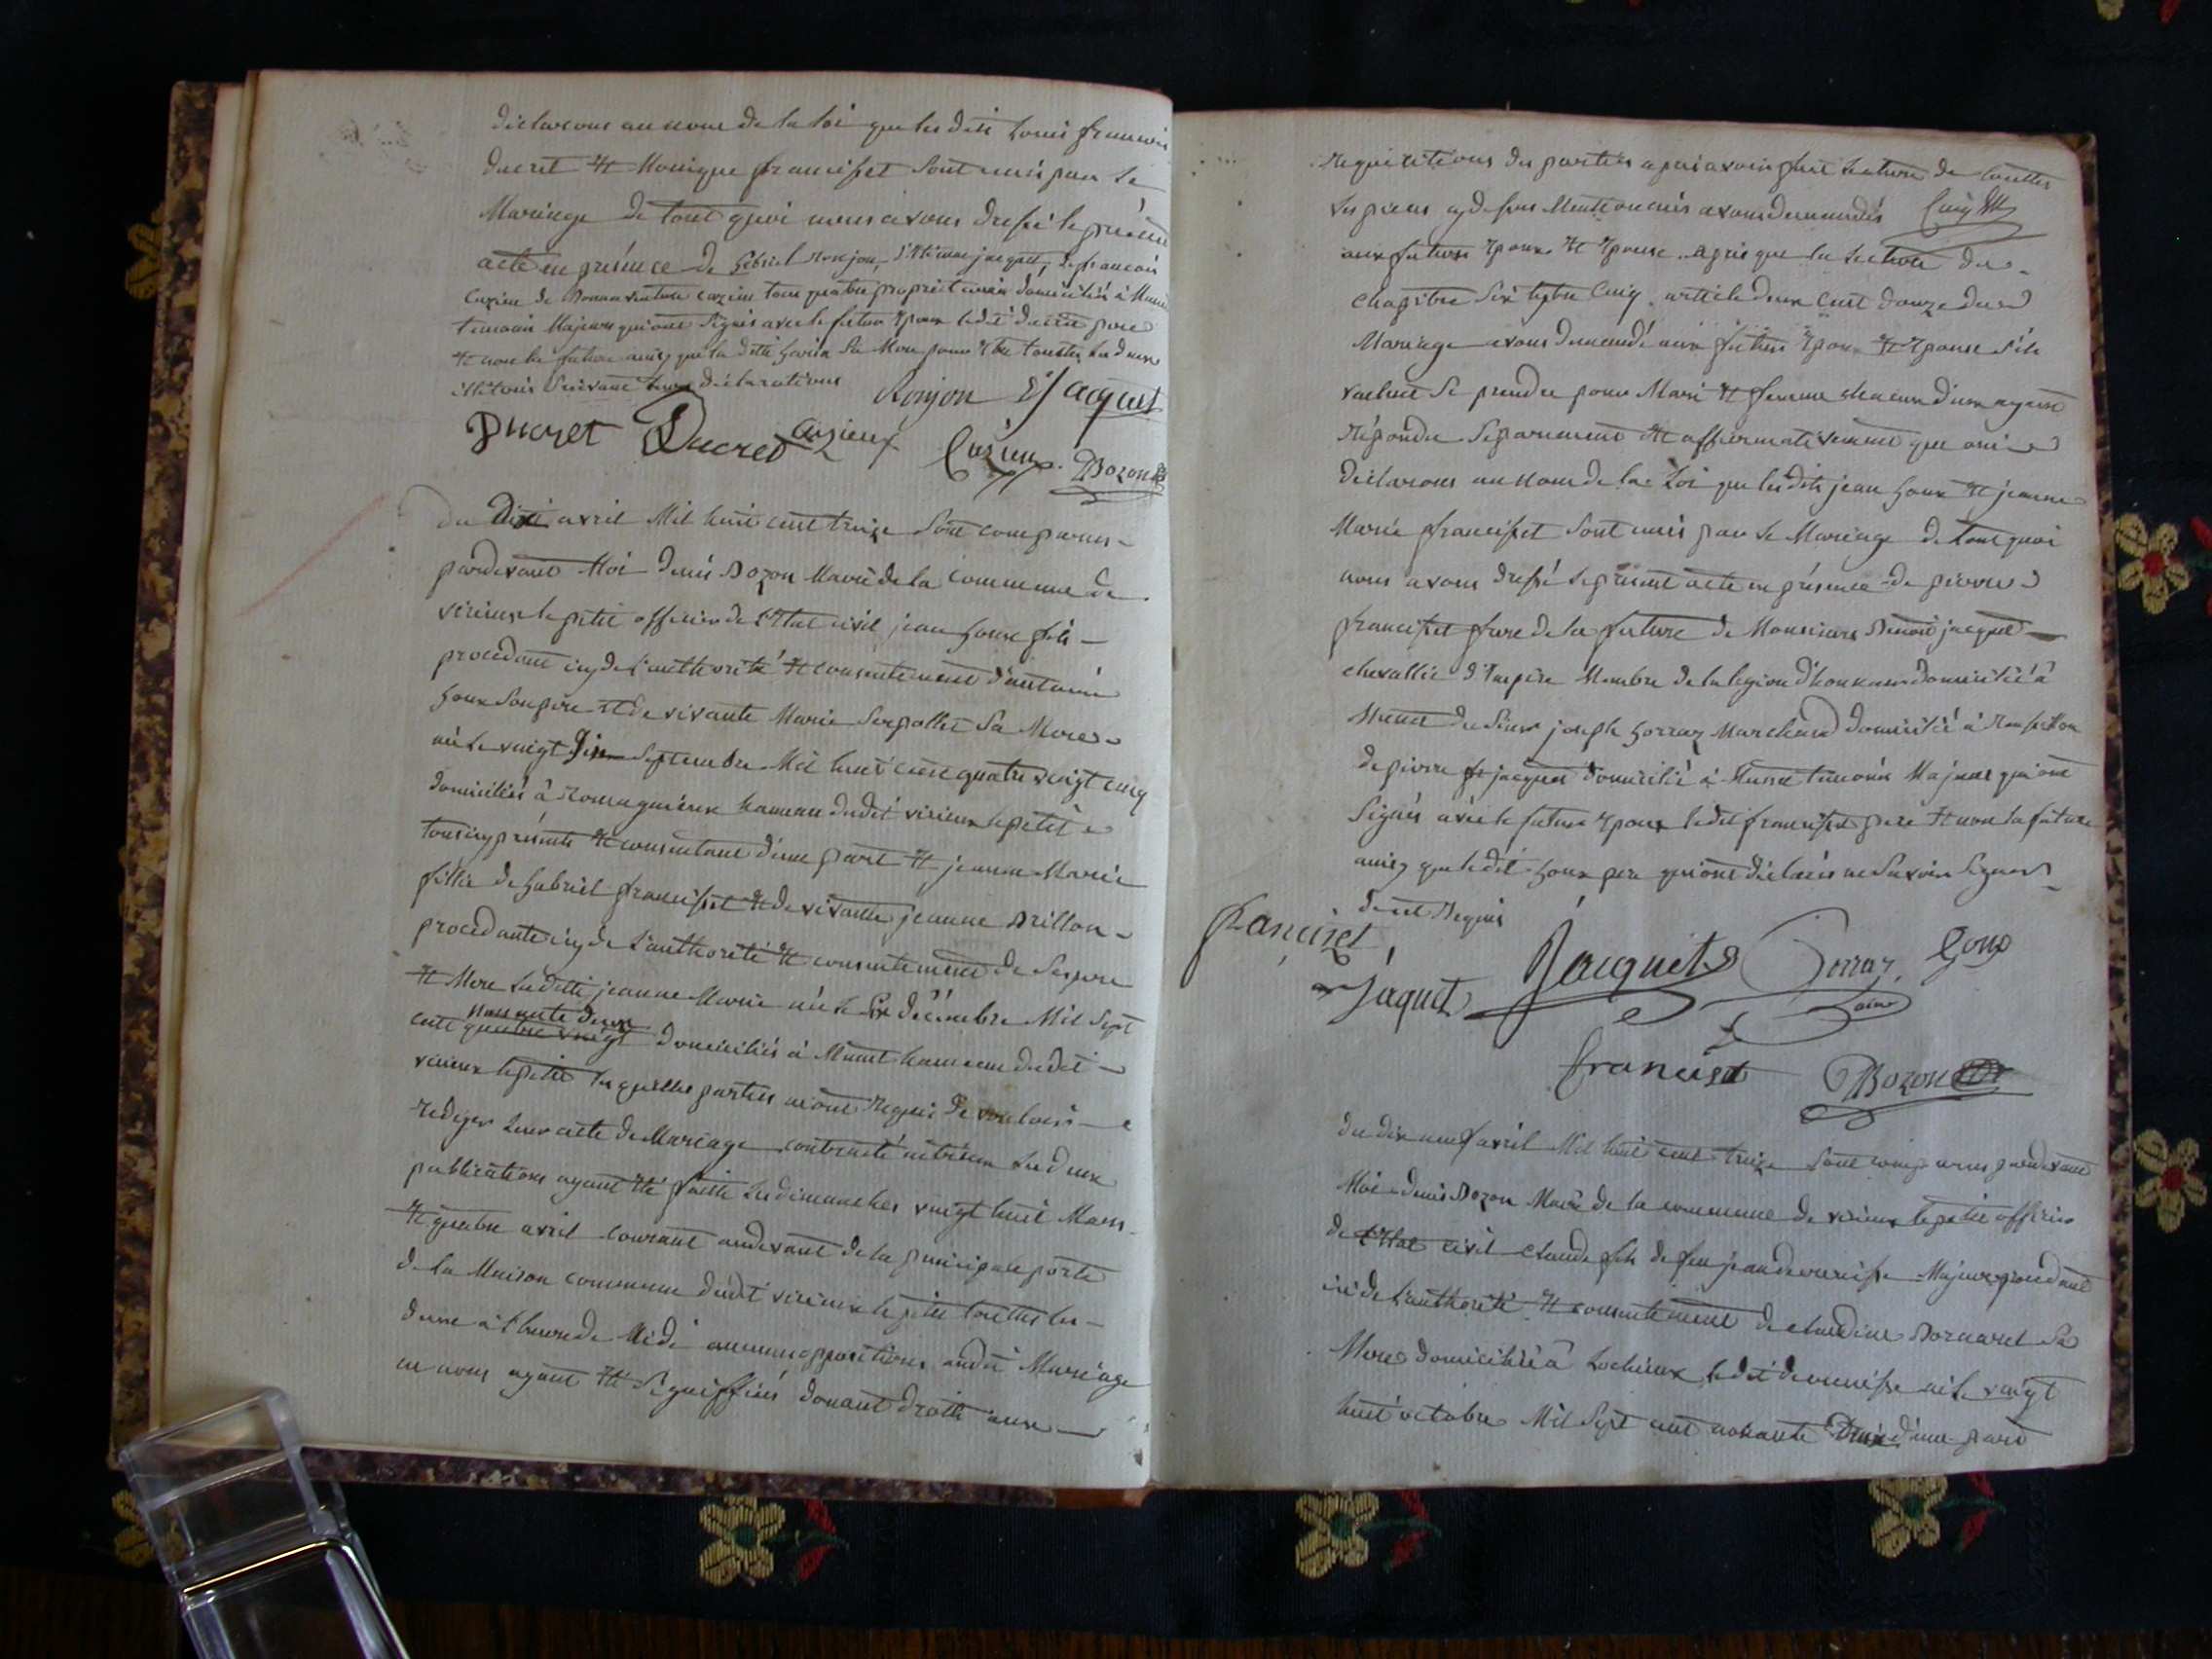 declarons au nom de la loi que les dits Louis francois
ducret et Monique francisset sont unis par le
Mariage de tout quoi nous avons dressé le présent
acte en présence de gabriel Ronjon, d'Etienne jacquet, de francois
Cuzieu de Bonnaventure cuzieu tous quatre propriétaires domiciliés à
temoins Majeurs qui ont signés avec le futur Epoux ledit ducret pere
et non la future ainsy que la ditte sa Mere pour Etre touttes les deux
illitérés suivant leurs déclarations Ronjon E Jacquet
Ducret Ducret Cuzieux Cuzieux Bozon
du Dix avril Mil huit cent treize sont comparus
pardevant Moi denis Bozon Maire de la Commune de
virieux le petit officier de l'Etat civil jean goux fils
procedant icy de l'authorité et consentement d'antoine
goux son pere et de vivante Marie Serpollet sa Mere
né le vingt septembre Mil sept cent quatre vingt cinq
domiciliés à Romagnieux hameau dudit virieux le petit
tous icy présents et consentant d'une part et jeanne Marie
fille de gabriel francisset et de vivante jeanne Brillon
procedante icy de l'authorité et consentement de ses pere
et Mere laditte jeanne Marie née le Six décembre Mil Sept
nonante deux
cent quatre vingt domiciliés à Munet hameau dudit
virieux le petit lesquelles parties m'ont requis de vouloir
rediger leur acte de Mariage contracté entreux les deux
publications ayant été faitte les dimanches vingt huit Mars
et quatre avril courant audevant de la principale porte
de la Maison commune dudit virieux le petit touttes les
deux à l'heure de Midi aucunne oppositions audit Mariage
ne nous ayant été signiffiés donant droits aux
requisitions des parties apres avoir fait lecture de touttes
les pieces cy dessus Mentionnées avons demandés
aux futurs Epoux et Epouse apres que la lecture du
chapitre Six titre Cinq article deux cent douze du
Mariage avons demandé aux futurs Epoux et Epouse s'ils
veulent se prendre pour Mari et femme chacun d'eux ayant
répondu séparement et affirmativement que oui
declarons au nom de la Loi que lesdits jean goux et jeanne
Marie francisset sont unis par le Mariage de tout quoi
nous avons dressé le présent acte en présence de pierre
francisset frere de la future de Monsieur Benoit jacquet
chevallier d'Empire Membre de la legion d'honneur domicilié à
Munet du Sieur joseph gorraz Marchand domicilié à Rossillon
de pierre jacquet domicilié à Munet temoins Majeurs qui ont
signés avec le futur Epoux ledit francisset pere et non la future
ainsy que ledit goux pere qui ont déclarés ne savoir signer
de ce Requis
francizet Jacquet Gorraz Goux
Jaquet ainé
francizet Bozon
du dix neuf avril Mil huit cent treize sont comparus pardevant
Moi denis Bozon Maire de la commune de virieux le petit officier
de l'Etat civil claude fils de feu jean Majeur procedant
ici de l'authorité et consentement de claudine Bornarel sa
Mere domiciliée à Lochieux ledit né le vingt
huit octobre Mil Sept cent nonante d'une part